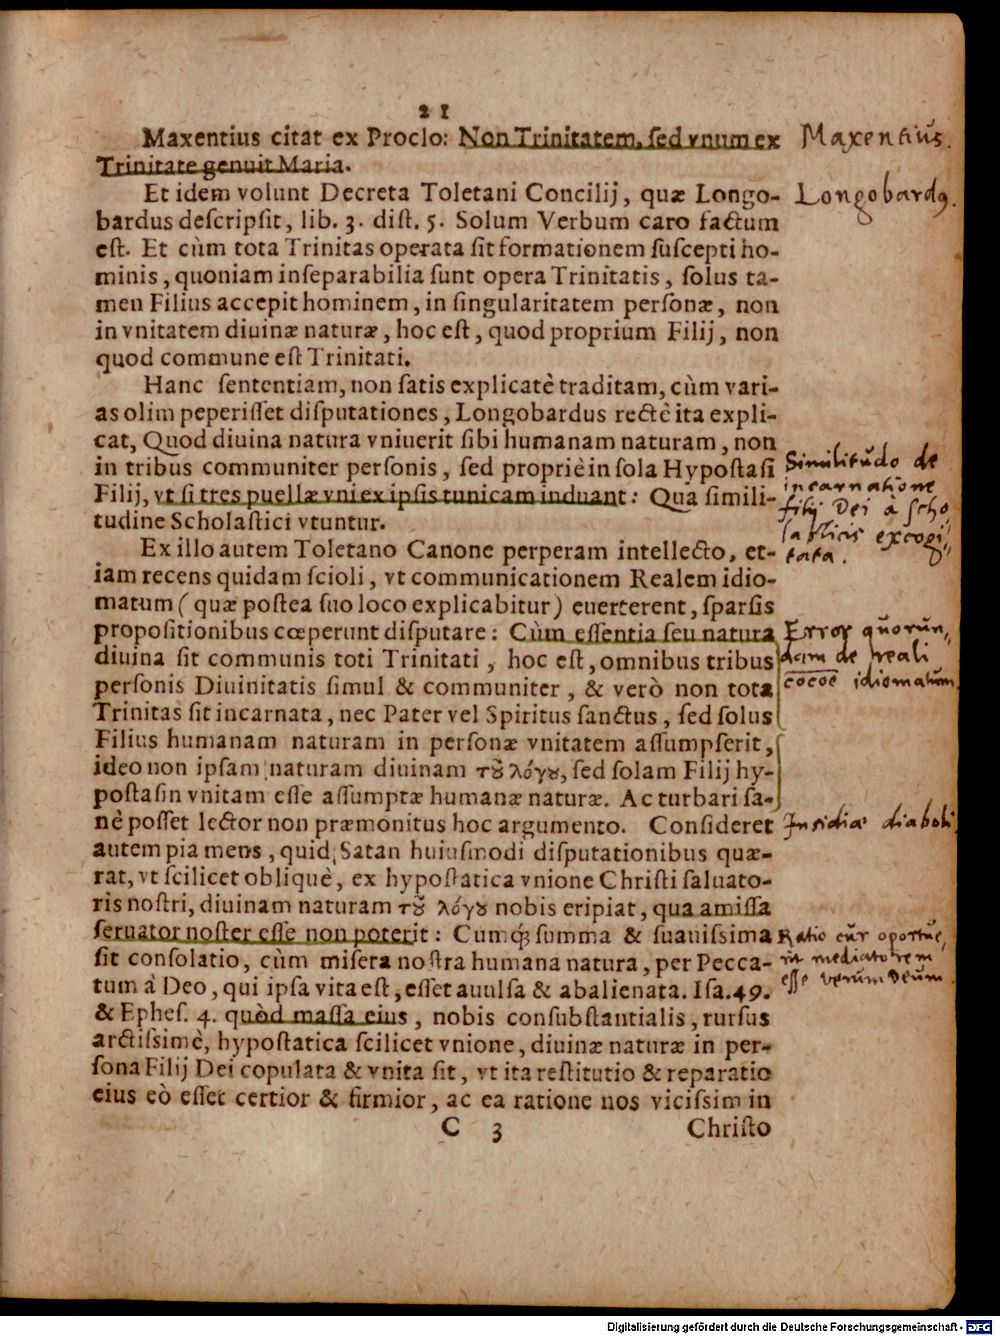 21
Maxentius citat ex Proclo: Non Trinitatem, ſed vnum ex
Maxentius.
Trinitate genuit Maria.
Et idem volunt Decreta Toletani Concilij, quæ Longo-
Longobardꝰ.
bardus deſcripſit, lib. 3. diſt. 5. Solum Verbum caro factum
eſt. Et cùm tota Trinitas operata ſit formationem ſuscepti ho-
minis, quoniam inſeparabilia ſunt opera Trinitatis, ſolus ta-
men Filius accepit hominem, in ſingularitatem perſonæ, non
in vnitatem diuinæ naturæ, hoc eſt, quod proprium Filij, non
quod commune eſt Trinitati.
Hanc ſententiam, non ſatis explicatè traditam, cùm vari-
as olim peperiſſet diſputationes, Longobardus rectè ita expli-
cat, Quod diuina natura vniuerit ſibi humanam naturam, non
in tribus communiter perſonis, ſed propriè in ſola Hypoſtaſi
Filij, vt ſi tres puellæ vni ex ipſis tunicam induant: Qua ſimili-
tudine Scholaſtici vtuntur.
Similitudo de
incarnatione
filij Dei à ſcho
laſticis excogi,,
tata.
Ex illo autem Toletano Canone perperam intellecto, et-
iam recens quidam ſcioli, vt communicationem Realem idio-
matum (quæ poſtea ſuo loco explicabitur) euerterent, ſparſis
propoſitionibus cœperunt diſputare: Cùm eſſentia ſeu natura
diuina ſit communis toti Trinitati, hoc eſt, omnibus tribus
perſonis Diuinitatis ſimul & communiter, & verò non tota
Error quorun,,
dam de reali
cōcōe idiomatum
Trinitas ſit incarnata, nec Pater vel Spiritus ſanctus, ſed ſolus
Filius humanam naturam in perſonæ vnitatem aſſumpſerit,
ideo non ipſam naturam diuinam τȣ̃ λόγȣ, ſed ſolam Filij hy-
poſtaſin vnitam eſſe aſſumptæ humanæ naturæ. Ac turbari ſa-
nè poſſet lector non præmonitus hoc argumento. Conſideret
Inſidiæ diaboli
autem pia mens, quid Satan huiuſmodi diſputationibus quæ-
rat, vt ſcilicet obliquè, ex hypoſtatica vnione Chriſti ſaluato-
ris noſtri, diuinam naturam τȣ̃ λόγȣ nobis eripiat, qua amiſſa
ſeruator noſter eſſe non poterit: Cumq́; ſumma & ſuauiſsima
ſit conſolatio, cùm miſera noſtra humana natura, per Pecca-
tum à Deo, qui ipſa vita eſt, eſſet auulſa & abalienata. Iſa. 49.
Ratio cur oportue,,
rit mediatorem
eſſe verum Deum
& Epheſ. 4. quòd maſſa eius, nobis conſubſtantialis, rurſus
arctiſsimè, hypoſtatica ſcilicet vnione, diuinæ naturæ in per-
ſona Filij Dei copulata & vnita ſit, vt ita reſtitutio & reparatio
eius eò eſſet certior & firmior, ac ea ratione nos viciſsim in
C 3
Chriſto
Digitalisierung gefördert durch die Deutsche Forschungsgemeinschaft - DFG